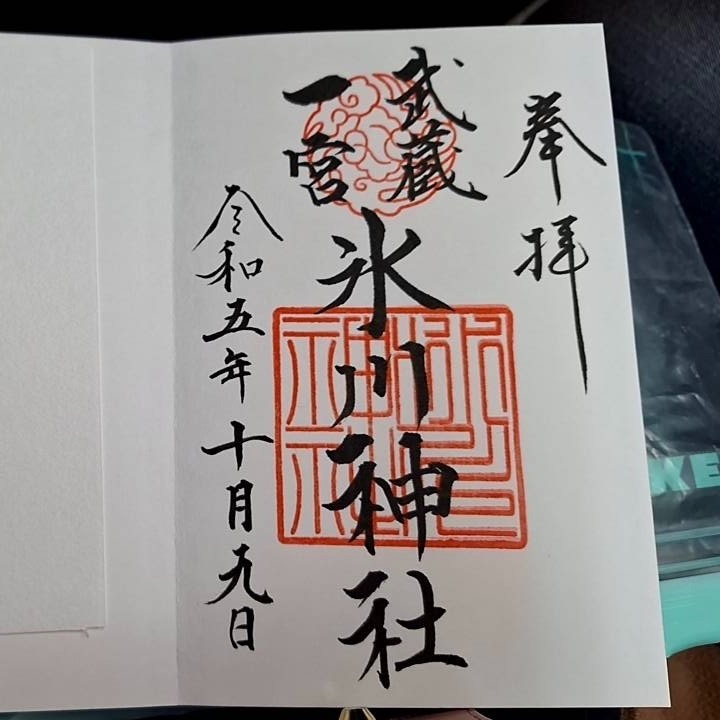 奉拝
武蔵
一宮
氷川神社
令和五年十月九日
KE